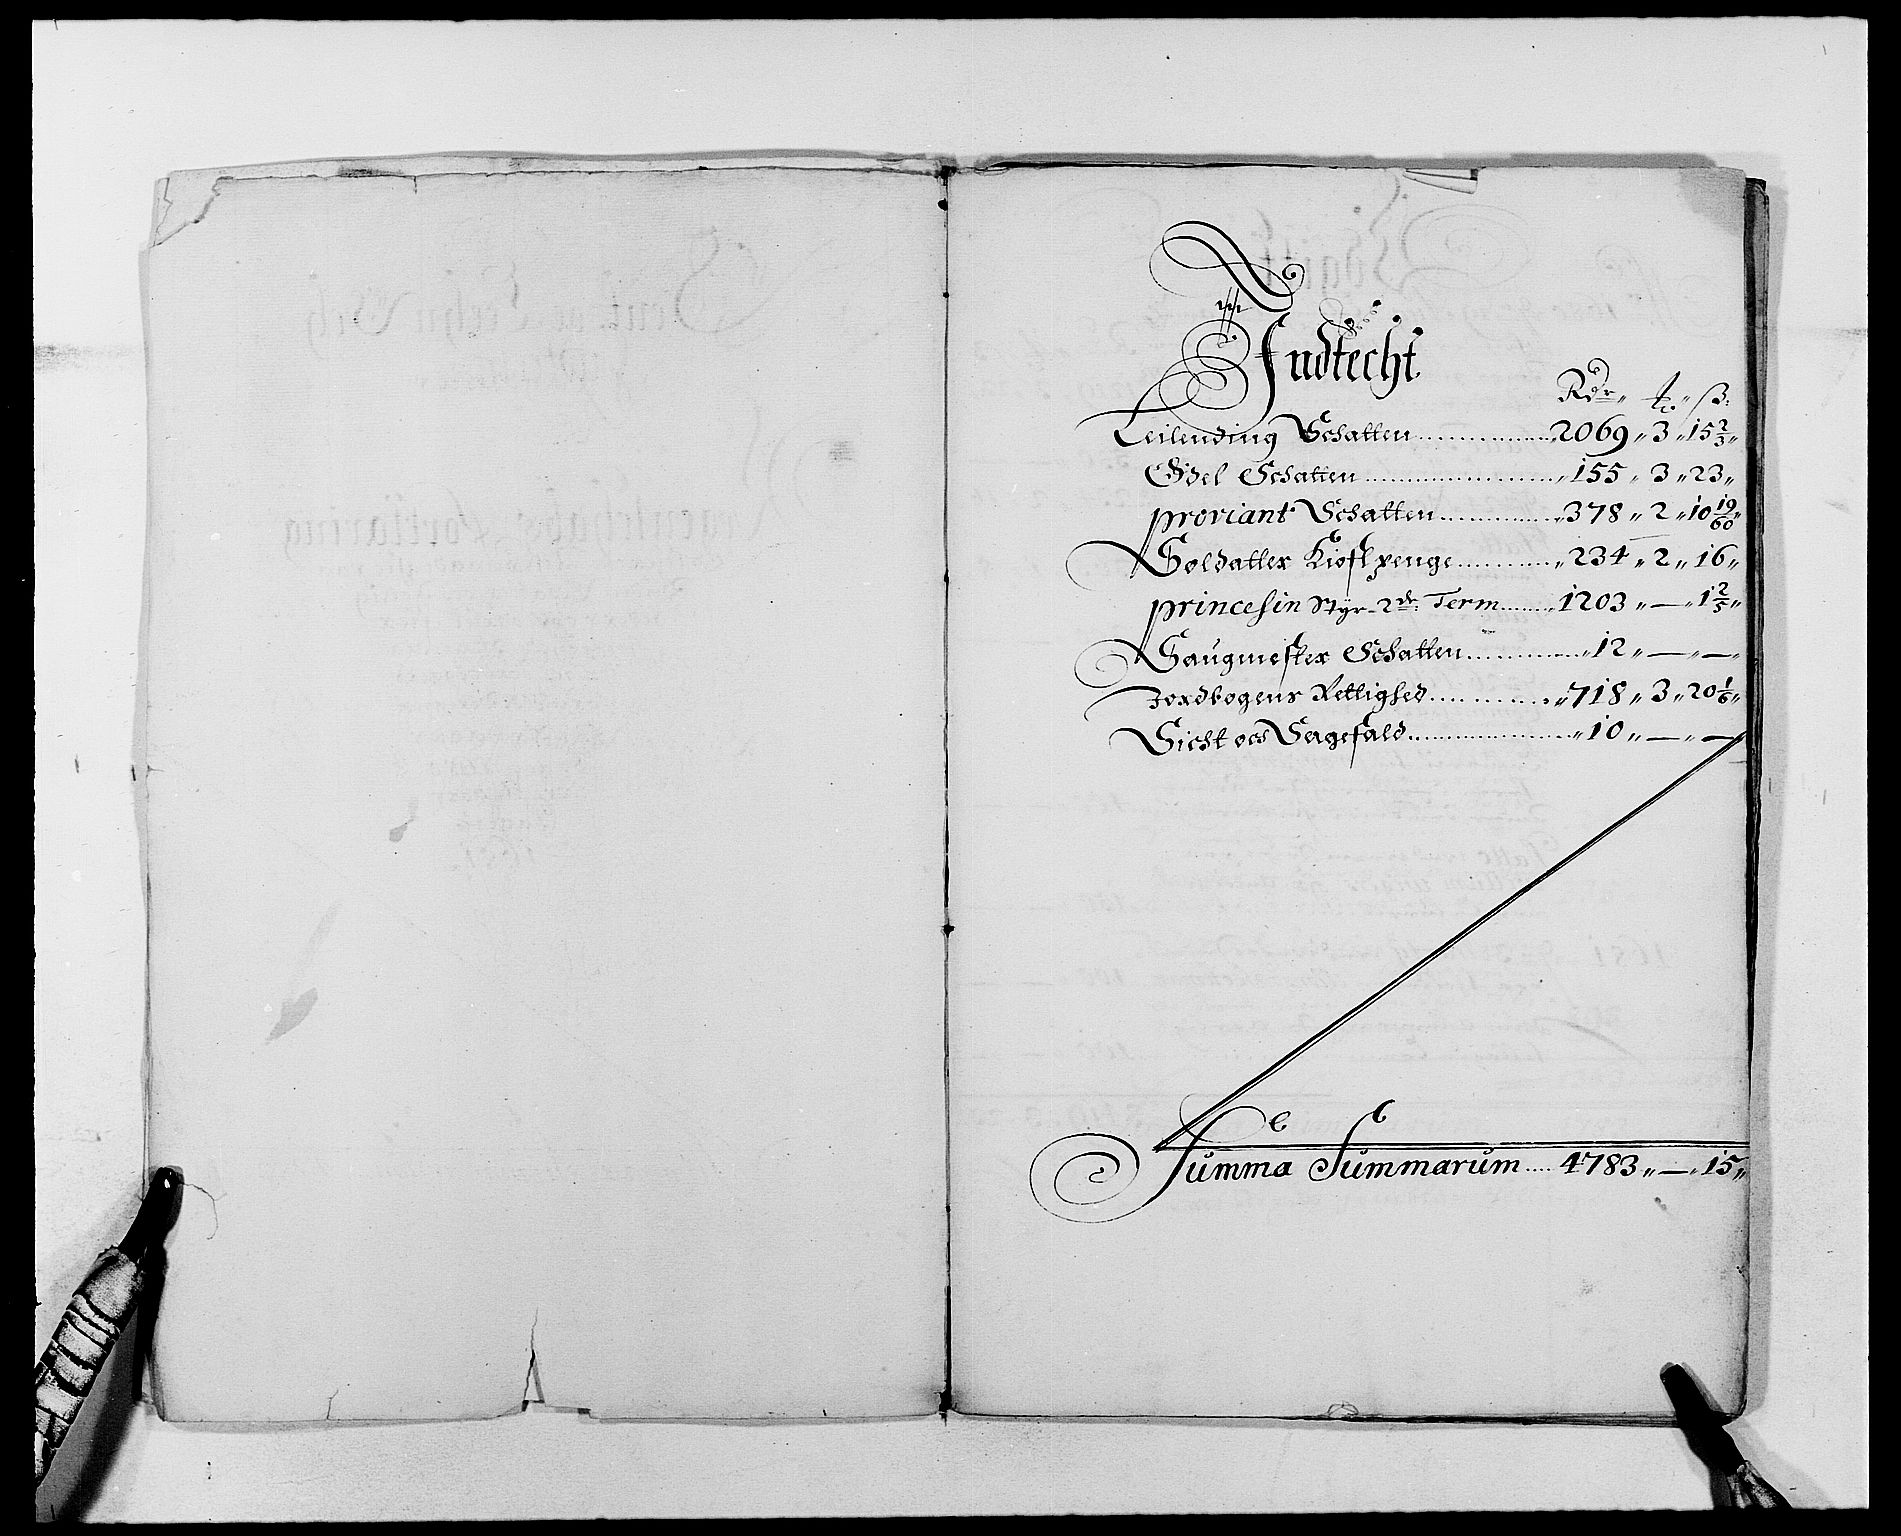 Indtecht
Rdr „ ƶ „ ß
Leilending Schatten 2069 „ 3 „ 15 2/3 „
Odel Schatten „ 155 „ 3 „ 23 „
proviant Schatten „ 378 „ 2 „ 10 19/60 „
Soldatter Kiostpenge „ 234 „ 2 „ 16 „
princesin Styr 2de Term „ 1203 „ — „ 1 2/5 „
Saugmester Schatten „ 12 „ — „ — „
Jordbogens Rettighed „ 718 „ 3 „ 20 1/6 „
Sicht och Sagefald „ 10 „ — „ —
Summa Summarum 4783 „ — „ 15 „